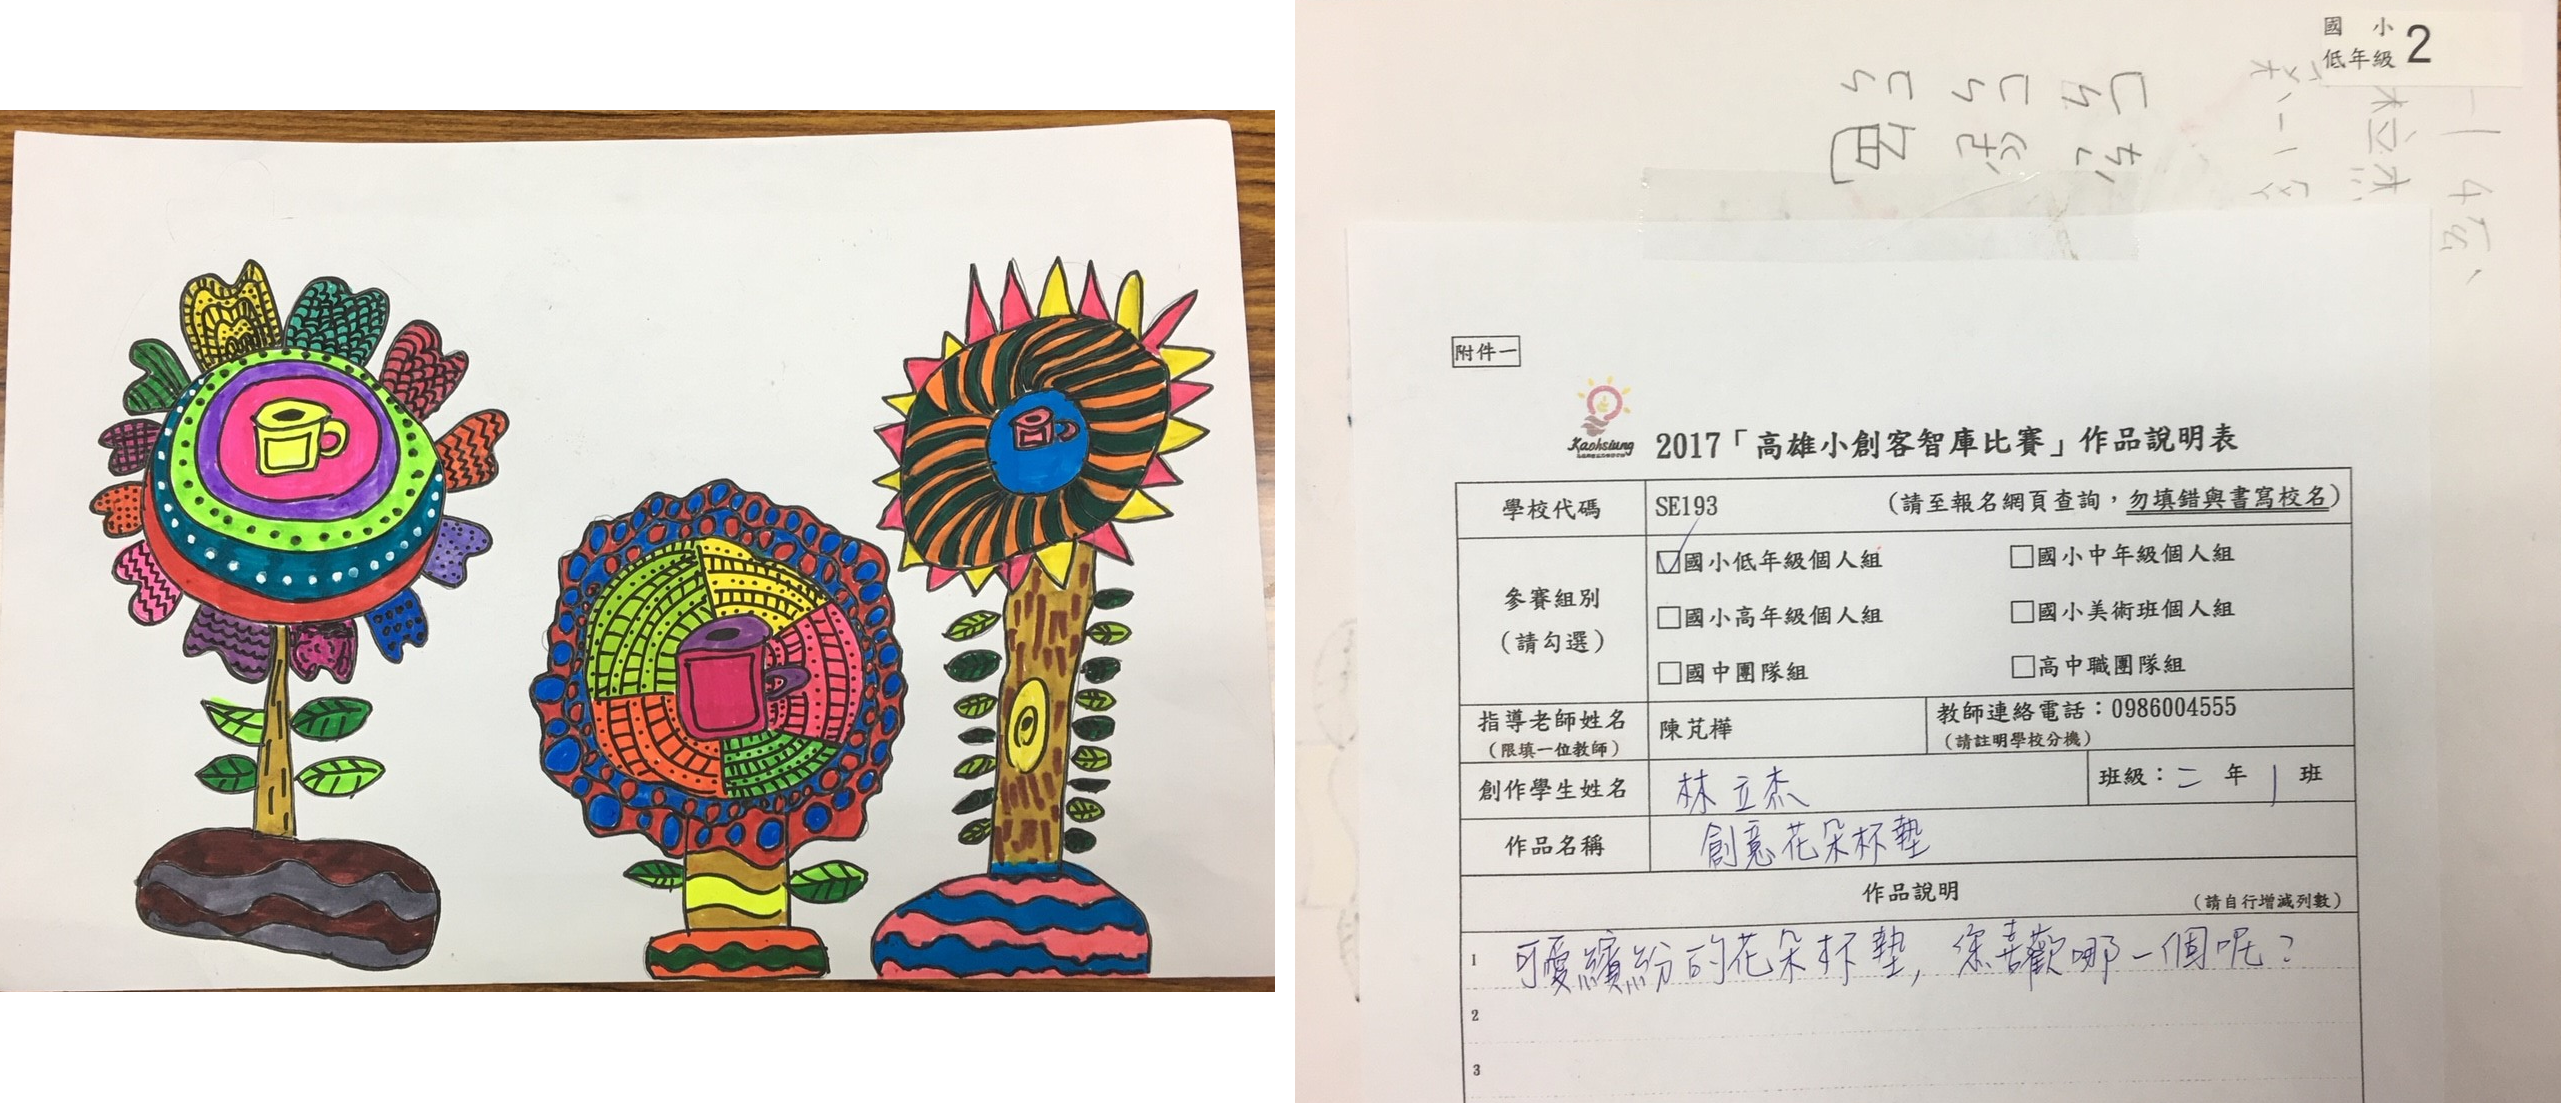 國小
低年級 2
附件一
Kaohsiung
2017「高雄小創客智庫比賽」作品說明表
學校代碼 SE193 (請至報名網頁查詢，勿填錯與書寫校名)
參賽組別
(請勾選)
☑國小低年級個人組 □國小中年級個人組
□國小高年級個人組 □國小美術班個人組
□國中團隊組 □高中職團隊組
指導老師姓名
(限填一位教師)
陳芃樺
教師連絡電話：0986004555
(請註明學校分機)
創作學生姓名 林立杰 班級：二年1班
作品名稱 創意花朵杯墊
作品說明 (請自行增減列數)
1 可愛繽紛的花朵杯墊，您喜歡哪一個呢？
2
3